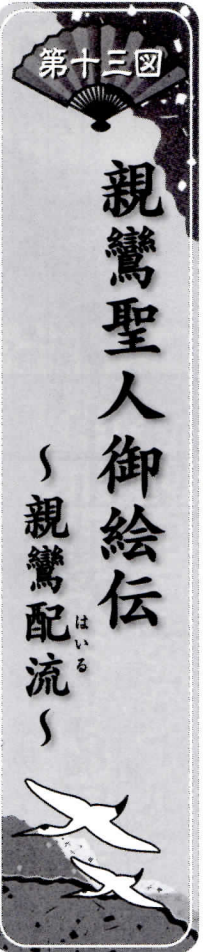 第十三図
親鸞聖人御絵伝
～親鸞配流～
はいる